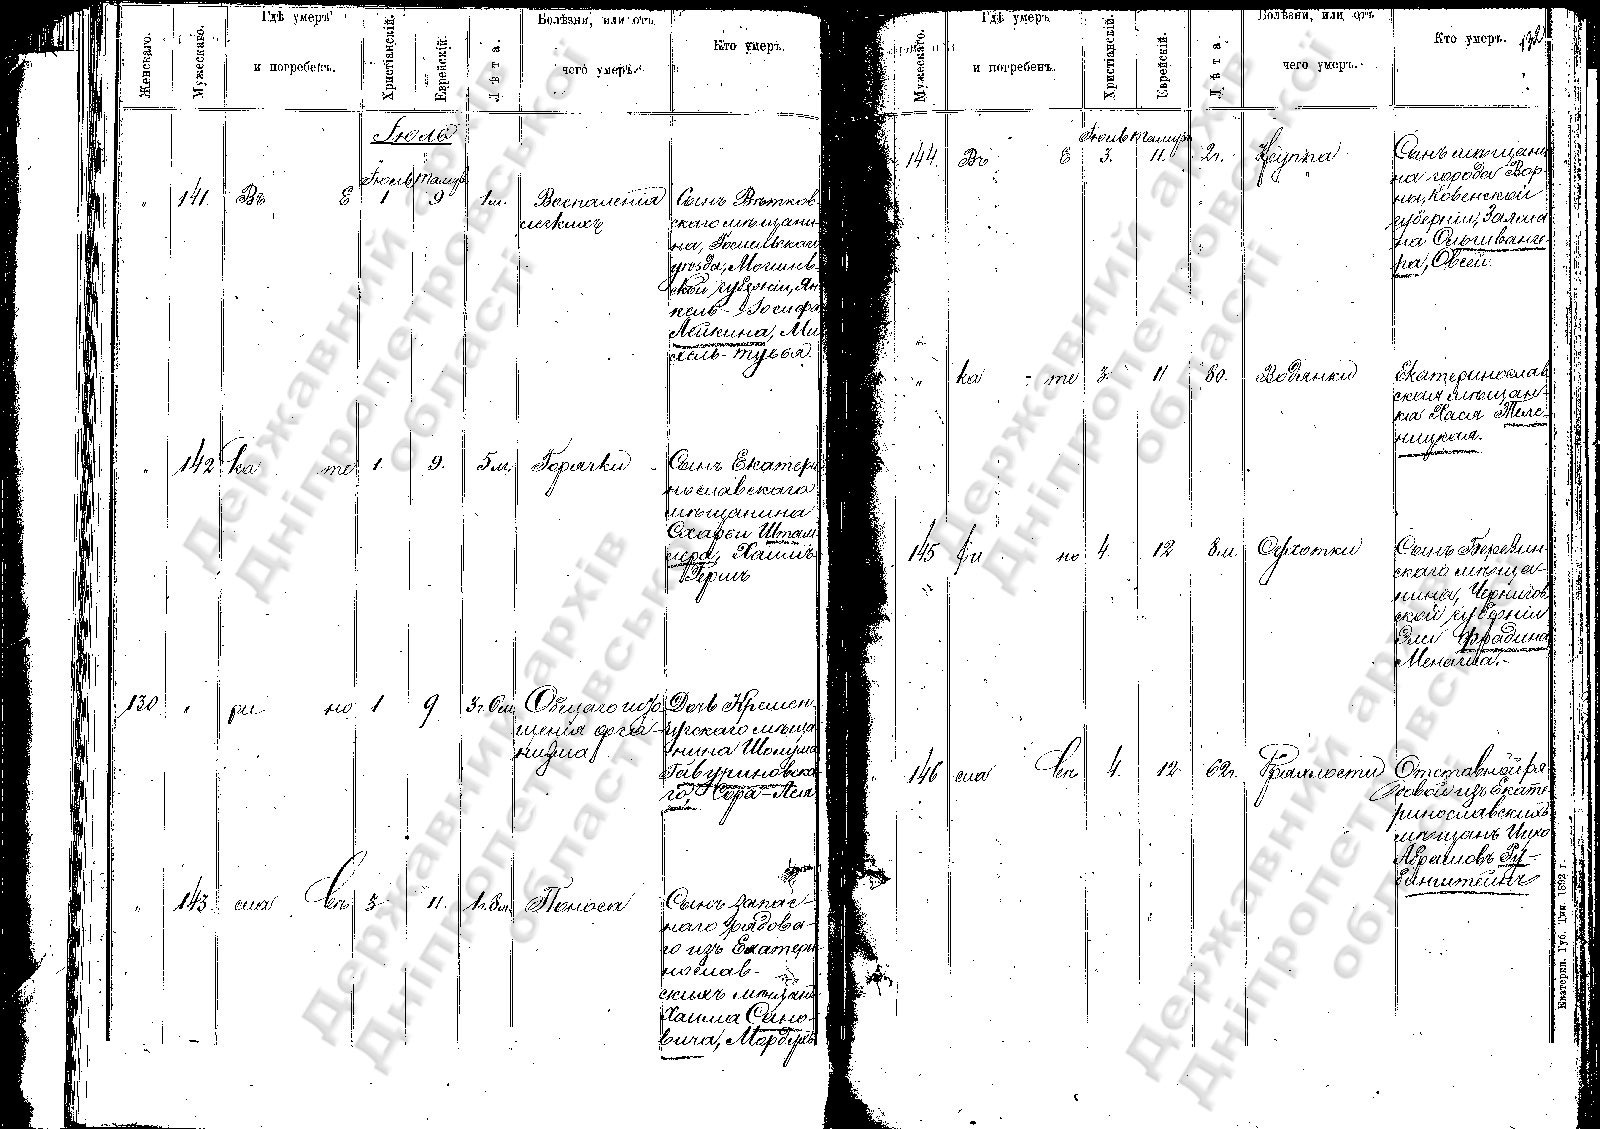 Женскаго.
Мужескаго.
Гдѣ умеръ
и погребенъ.
Христіанскій.
Еврейскій.
Лѣта.
Болѣзни, или отъ
чего умеръ.
Кто умеръ.
Іюль
Іюль Тамуз
" 141. Въ Е 1 9 1 м. Воспаленія
легкихъ
Сынъ Вѣтков
скаго мѣщани
на, Гомельскаго
уѣзда, Могилев
ской губерніи, Ян
кель-Іосифа
Лейкина, Ми
хель-Тувья
" 142 ка те 1. 9. 5 м. Горячки
Сынъ Екатери
нославскаго
мѣщанина
Сахарьи Штам
лера, Хаимъ
Гершъ
130 " ри но 1 9 3 г. 6 м. Общаго исто
щенія орга-
низма
Дочь Кремен
чугскаго мѣща
нина Шолума
Габуриновска
го, Сора-Лея
" 143 сла вѣ 3 11. 1 г. 8 м. Поноса
Сынъ запас-
наго рядова-
го изъ Екатери
нослав-
скихъ мѣщанъ
Хаима Сано-
вича, Мордухъ
Мужескаго.
Гдѣ умеръ
и погребенъ.
Христіанскій.
Еврейскій.
Лѣта.
Болѣзни, или отъ
чего умеръ.
Кто умеръ.
132
Іюль Тамуз
144. Въ Е 3. 11. 2 г. Крупа
Сынъ мѣщани
на города Вор
на, Ковенской
губерніи, Залма
на Ольшванге-
ра, Овсей.
" ка - те 3. 11 80. Водянки
Екатеринослав
ская мѣщан-
ка Хася Теле-
ницкая.
145 ри но 4. 12 8 м. Сухотки
Сынъ Березин-
скаго мѣща-
нина, Чернигов
ской губерніи
Эли Фрадина
Менаша.-
146 сла вѣ 4. 12 62 г. Дряхлости
Отставной ря
довой изъ Екате
ринославскихъ
мѣщанъ Ицко
Абрамовъ Ру-
бинштейнъ
Екатерин. Губ. Тип. 1892 г.
Державний архів
Дніпропетровської
області
Державний архів
Дніпропетровської
області
Державний архів
Дніпропетровської
області
Державний архів
Дніпропетровської
області